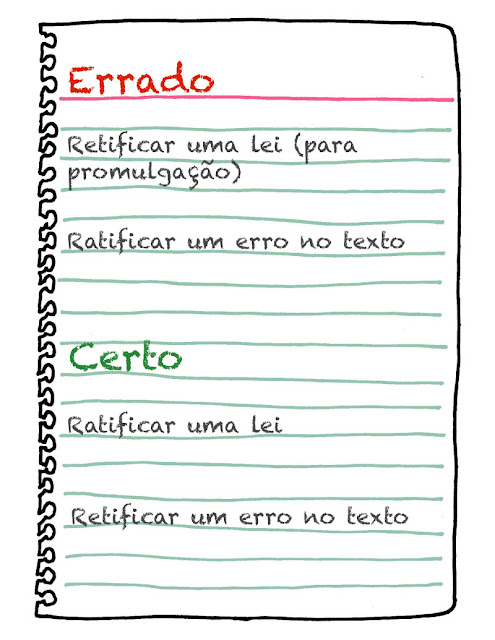 Errado
Retificar uma lei (para
promulgação)
Ratificar um erro no texto
Certo
Ratificar uma lei
Retificar um erro no texto